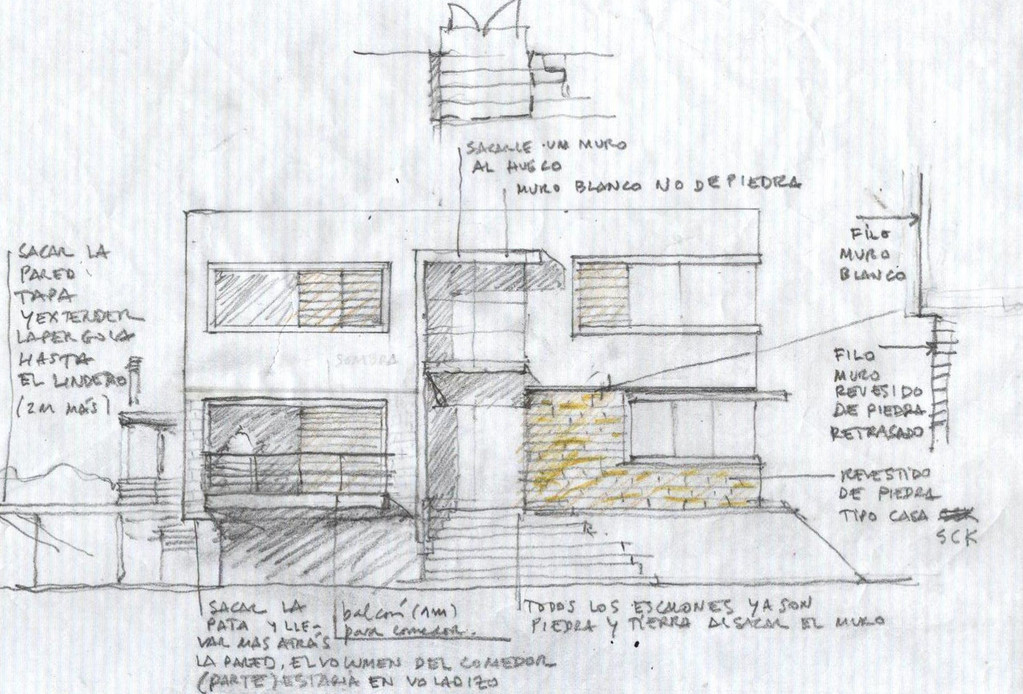 SACARLE UN MURO
AL HUECO
MURO BLANCO NO DE PIEDRA
SACAR LA
PARED
TAPA
Y EXTENDER
LA PERGOLA
HASTA
EL LINDERO
(2m MÁS)
SOMBRA
FILO
MURO
BLANCO
FILO
MURO
REVESIDO
DE PIEDRA
RETRASADO
REVESTIDO
DE PIEDRA
TIPO CASA
SCK
SACAR LA
PATA Y LLE-
VAR MAS ATRÁS
LA PARED, EL VOLUMEN DEL COMEDOR
(PARTE) ESTARIA EN VOLADIZO
balcón (1m)
para comedor.
TODOS LOS ESCALONES YA SON
PIEDRA Y TIERRA AL SACAR EL MURO